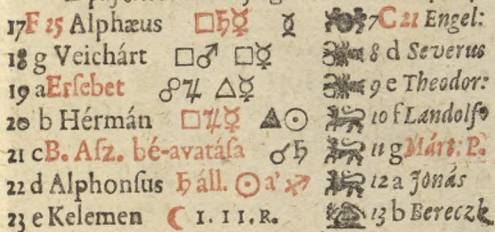 17 F 25 Alphæus □♄☿ ☿ 7 C 21 Engel:
18 g Veichárt □♂ □☿ 8 d Severus
19 a Ersebet ☍♃ △☿ 9 e Theodor:
20 b Hérmán □♃☿ ▲☉ 10 f Landolf⁹
21 c B. Asz. bé-avatása ☌♄ 11 g Márt: P.
22 d Alphonsus ♄ áll. ☉ a' ♐ 12 a Jónás
23 e Kelemen ☾ 1. 11. R. 13 b Bereczk